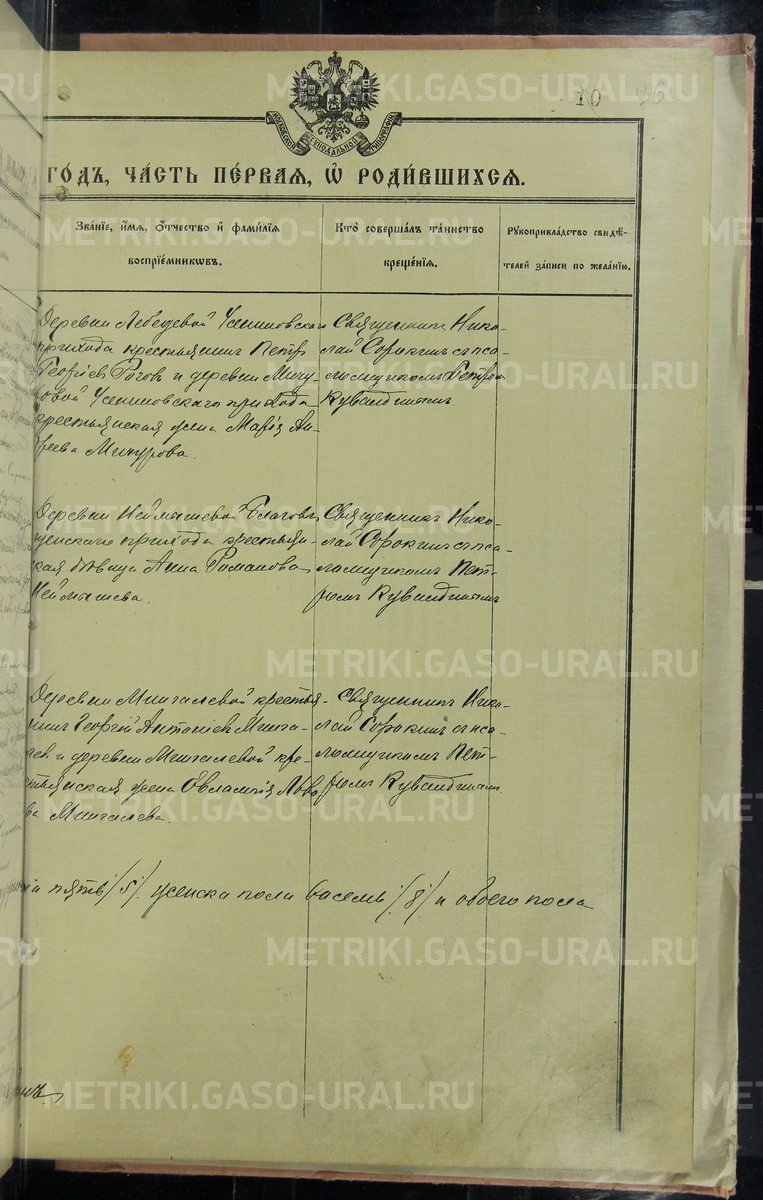 METRIKI.GASO-URAL.RU
10 76
МОСКОВСКОЙ СѴНОДАЛЬНОЙ ТИПОГРАФІИ
ГО́ДЪ, ЧА́СТЬ ПЕ́РВАЯ, Ѡ҆ РОДИ́ВШИХСЯ.
Зва́нїе, и҆́мя, ѻ҆́тчество и҆ фами́лїя
воспрїе́мникѡвъ.
Кто̀ соверша́лъ та́инство
креще́нїя.
Рꙋкоприкла́дство свидѣ́-
телей за́писи по жела́нїю.
Деревни Лебедевой
прихода крестьянинъ Петръ
Георгіев Рогов и деревни Мичу-
ровой прихода
крестьянская жена Марія Ан-
Мичурова.
Священникъ Нико-
лай Сорокинъ съ пса-
ломщикомъ Петром
Кувалдинымъ
Деревни Неймышевой Благовѣ-
щенскаго прихода крестьян-
ская дѣвица Анна Романова
Неймышева.
Священникъ Нико-
лай Сорокинъ съ пса-
ломщикомъ Пет-
ромъ Кувалдинымъ
Деревни Мингалевой крестья-
нинъ Георгій Антоніев Минга-
лев и деревни Мингалевой кре-
стьянская жена Евлампія
ва Мингалева.
Священникъ Нико-
лай Сорокинъ съ пса-
ломщикомъ Пет-
ромъ Кувалдинымъ
пять /5/. женска пола восемь /8/ и обоего пола